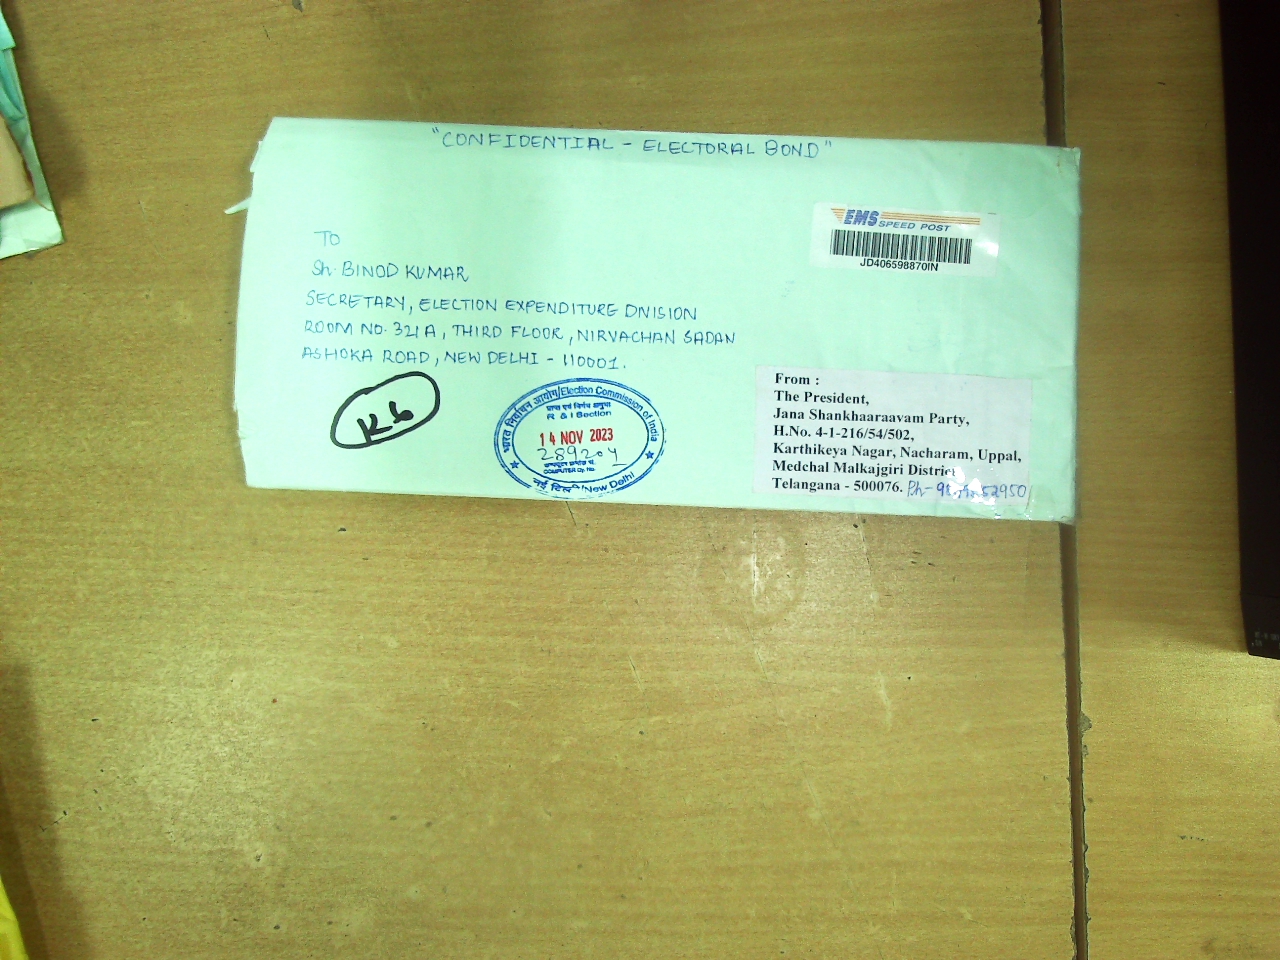 "CONFIDENTIAL - ELECTORAL BOND"
EMS SPEED POST
JD406598870IN
TO
Sh. BINOD KUMAR
SECRETARY, ELECTION EXPENDITURE DIVISION
ROOM NO. 321A, THIRD FLOOR, NIRVACHAN SADAN
ASHOKA ROAD, NEW DELHI - 110001.
K6
भारत निर्वाचन आयोग/Election Commission of India
प्राप्त एवं निर्गम अनुभाग
R & I Section
14 NOV 2023
289204
COMPUTER Dy. No.
नई दिल्ली/New Delhi
From :
The President,
Jana Shankhaaraavam Party,
H.No. 4-1-216/54/502,
Karthikeya Nagar, Nacharam, Uppal,
Medchal Malkajgiri District
Telangana - 500076. Ph-